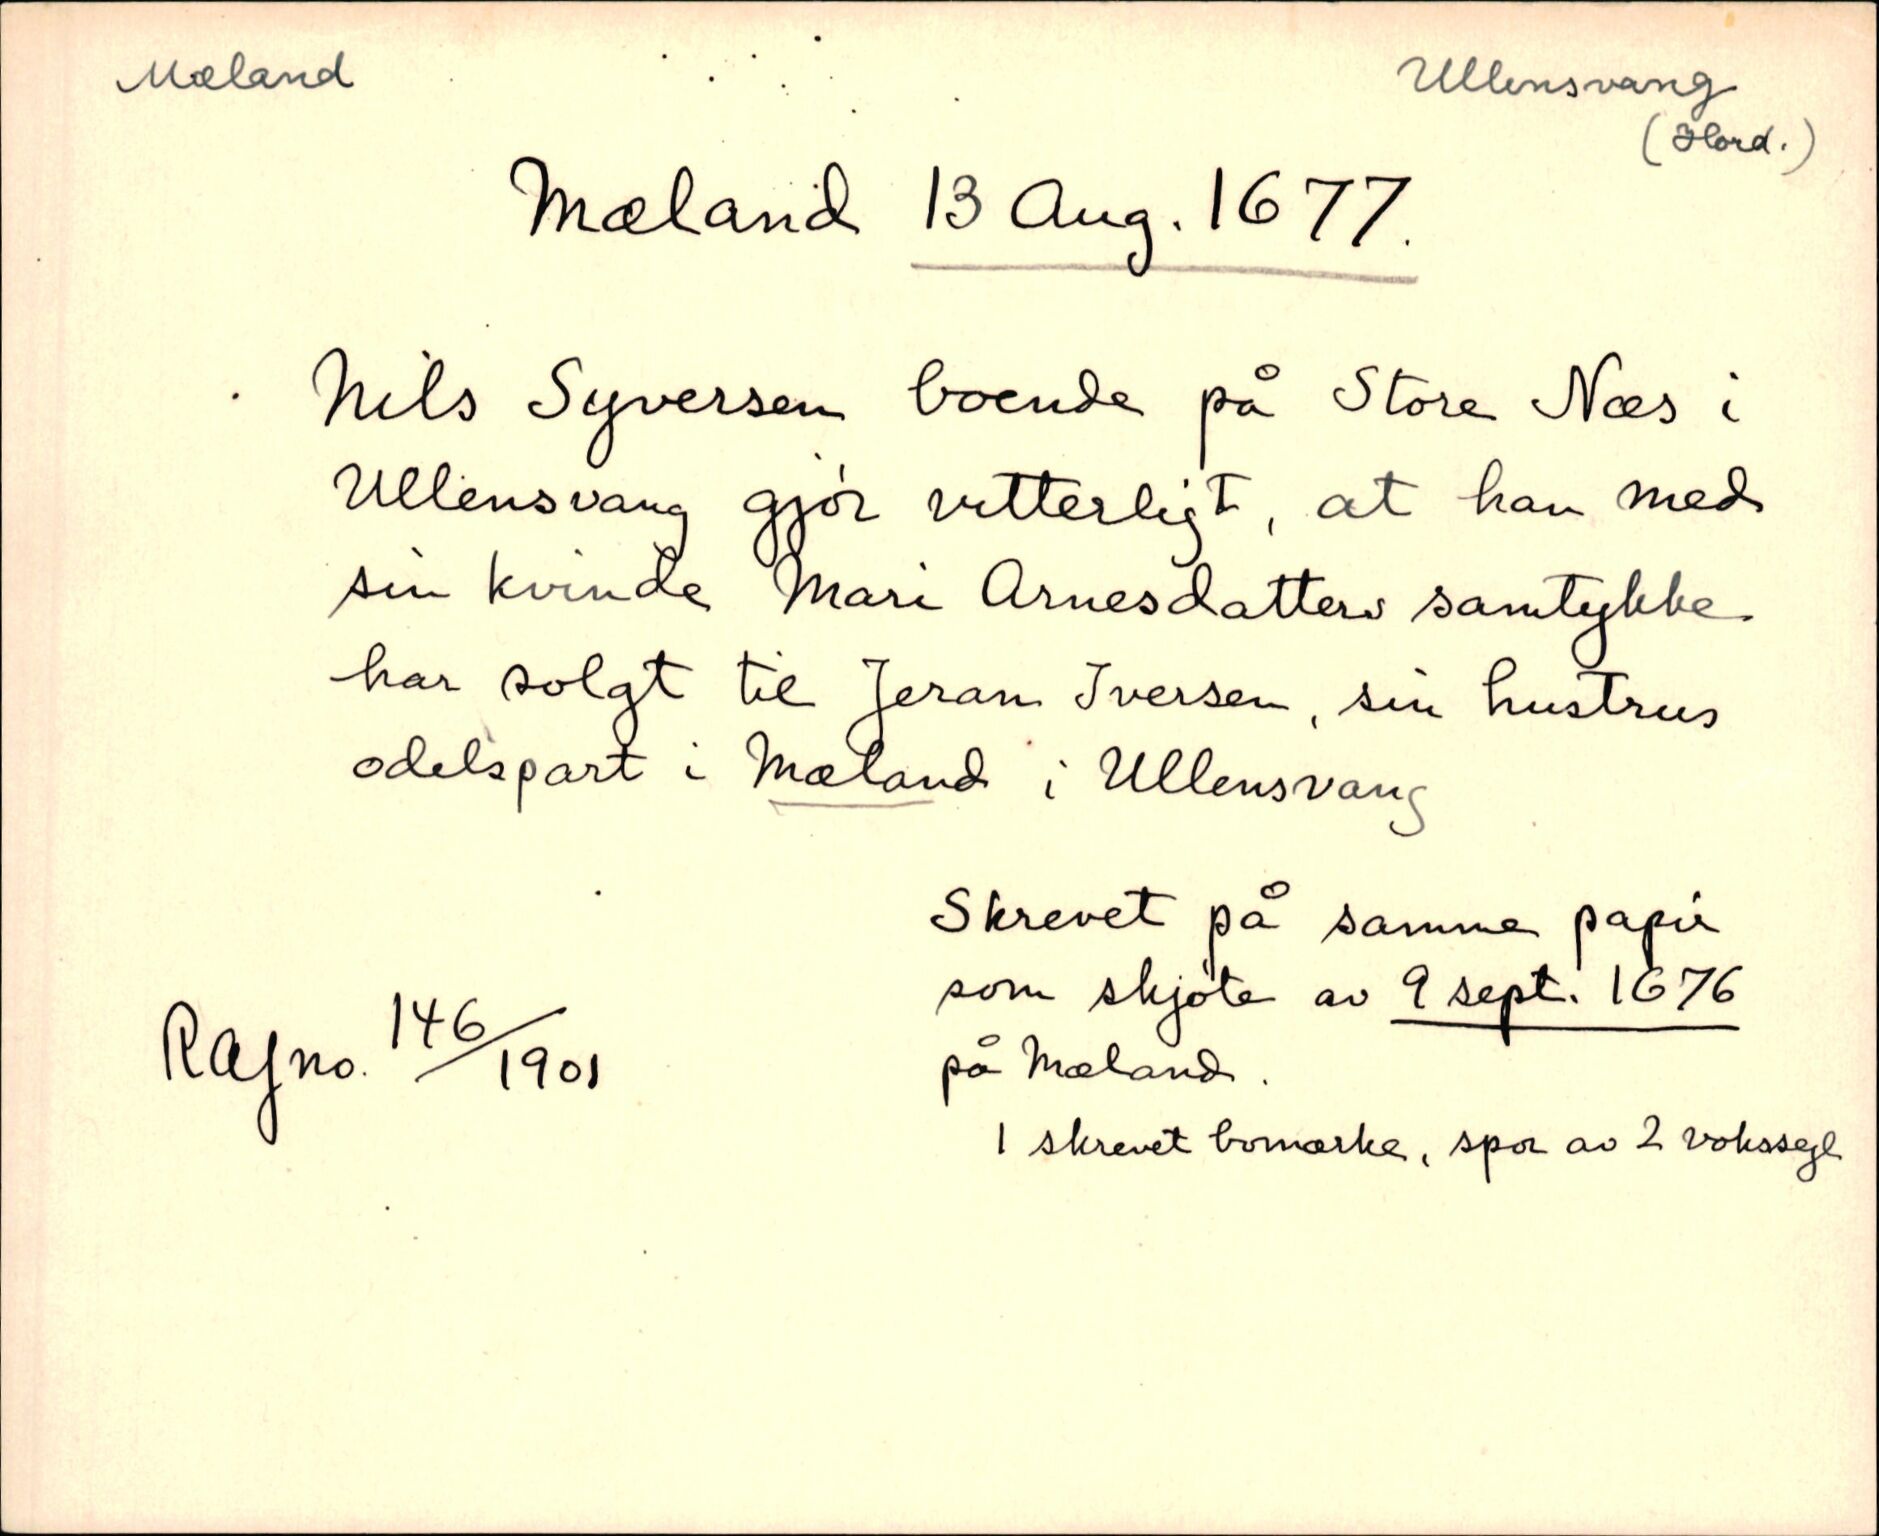 Mæland
Ullensvang
(Hord.)
Mæland 13 Aug. 1677.
Nils Syversen boende på Store Næs i
Ullensvang gjór vitterligt, at han med
sin kvinde Mari Arnesdatters samtykke
har solgt til Jeran Iversen, sin hustrus
odelspart i Mæland i Ullensvang
Skrevet på samme papir
som skjóte av 9 sept. 1676
på Mæland.
RAjno. 146/1901
1 skrevet bomærke, spor av 2 vokssegl